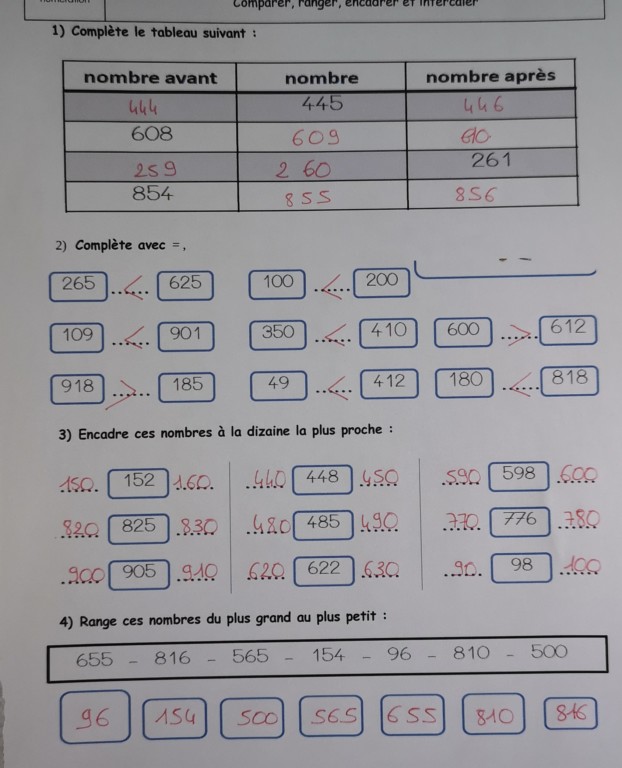 numération Comparer, ranger, encadrer et intercaler
1) Complète le tableau suivant :
nombre avant nombre nombre après
444 445 446
608 609 610
259 260 261
854 855 856
2) Complète avec = ,
265 ...<... 625 100 ...<... 200
109 ...<... 901 350 ...<... 410 600 ...>... 612
918 ...>... 185 49 ...<... 412 180 ...<... 818
3) Encadre ces nombres à la dizaine la plus proche :
150 152 160 440 448 450 590 598 600
820 825 830 480 485 490 770 776 780
900 905 910 620 622 630 90 98 100
4) Range ces nombres du plus grand au plus petit :
655 - 816 - 565 - 154 - 96 - 810 - 500
96 154 500 565 655 810 816